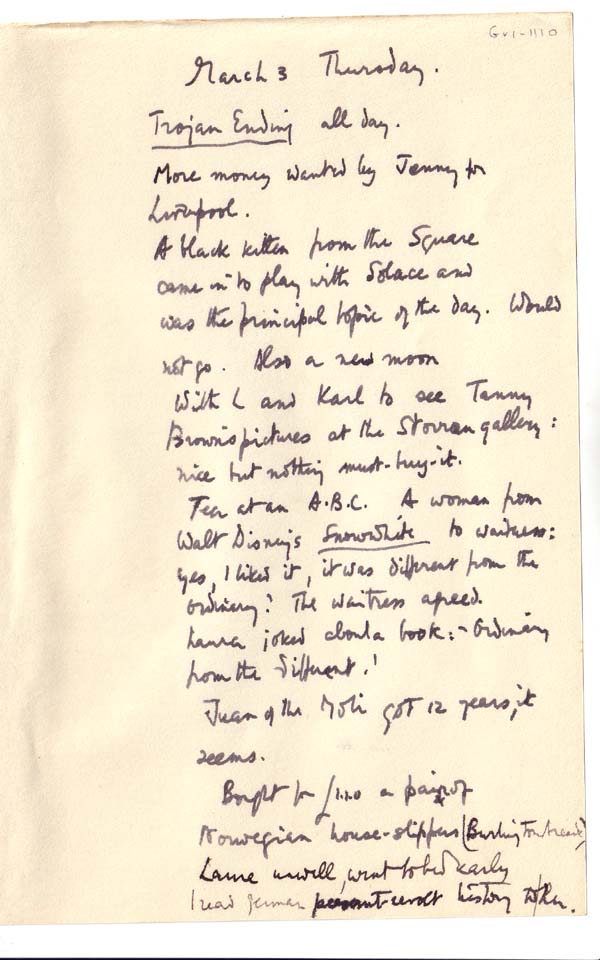 March 3 Thursday.
Trojan Ending all day.
More money wanted by Jenny for
Liverpool.
A black kitten from the Square
came in to play with Solace and
was the principal topic of the day. Would
not go. Also a new moon
With L and Karl to see Tanny
Brown's pictures at the Storran gallery:
nice but nothing must-buy-it.
Tea at an A.B.C. A woman from
Walt Disney's Snowwhite to waitress:
yes, I liked it, it was different from the
ordinary! The waitress agreed.
Laura joked about a book:- Ordinary
from the Different!
Juan of the got 12 years, it
seems.
Bought for a pair of
Norwegian house-slippers (Burlington Arcade)
Laura unwell, went to bed early
I read German peasant-revolt history to her.